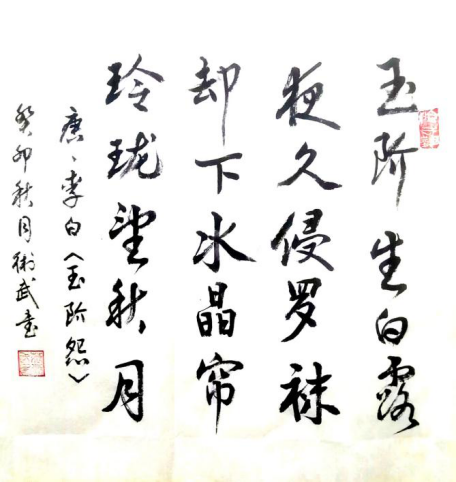 玉阶生白露
夜久侵罗袜
却下水晶帘
玲珑望秋月
唐、李白《玉阶怨》
癸卯秋月衛武书